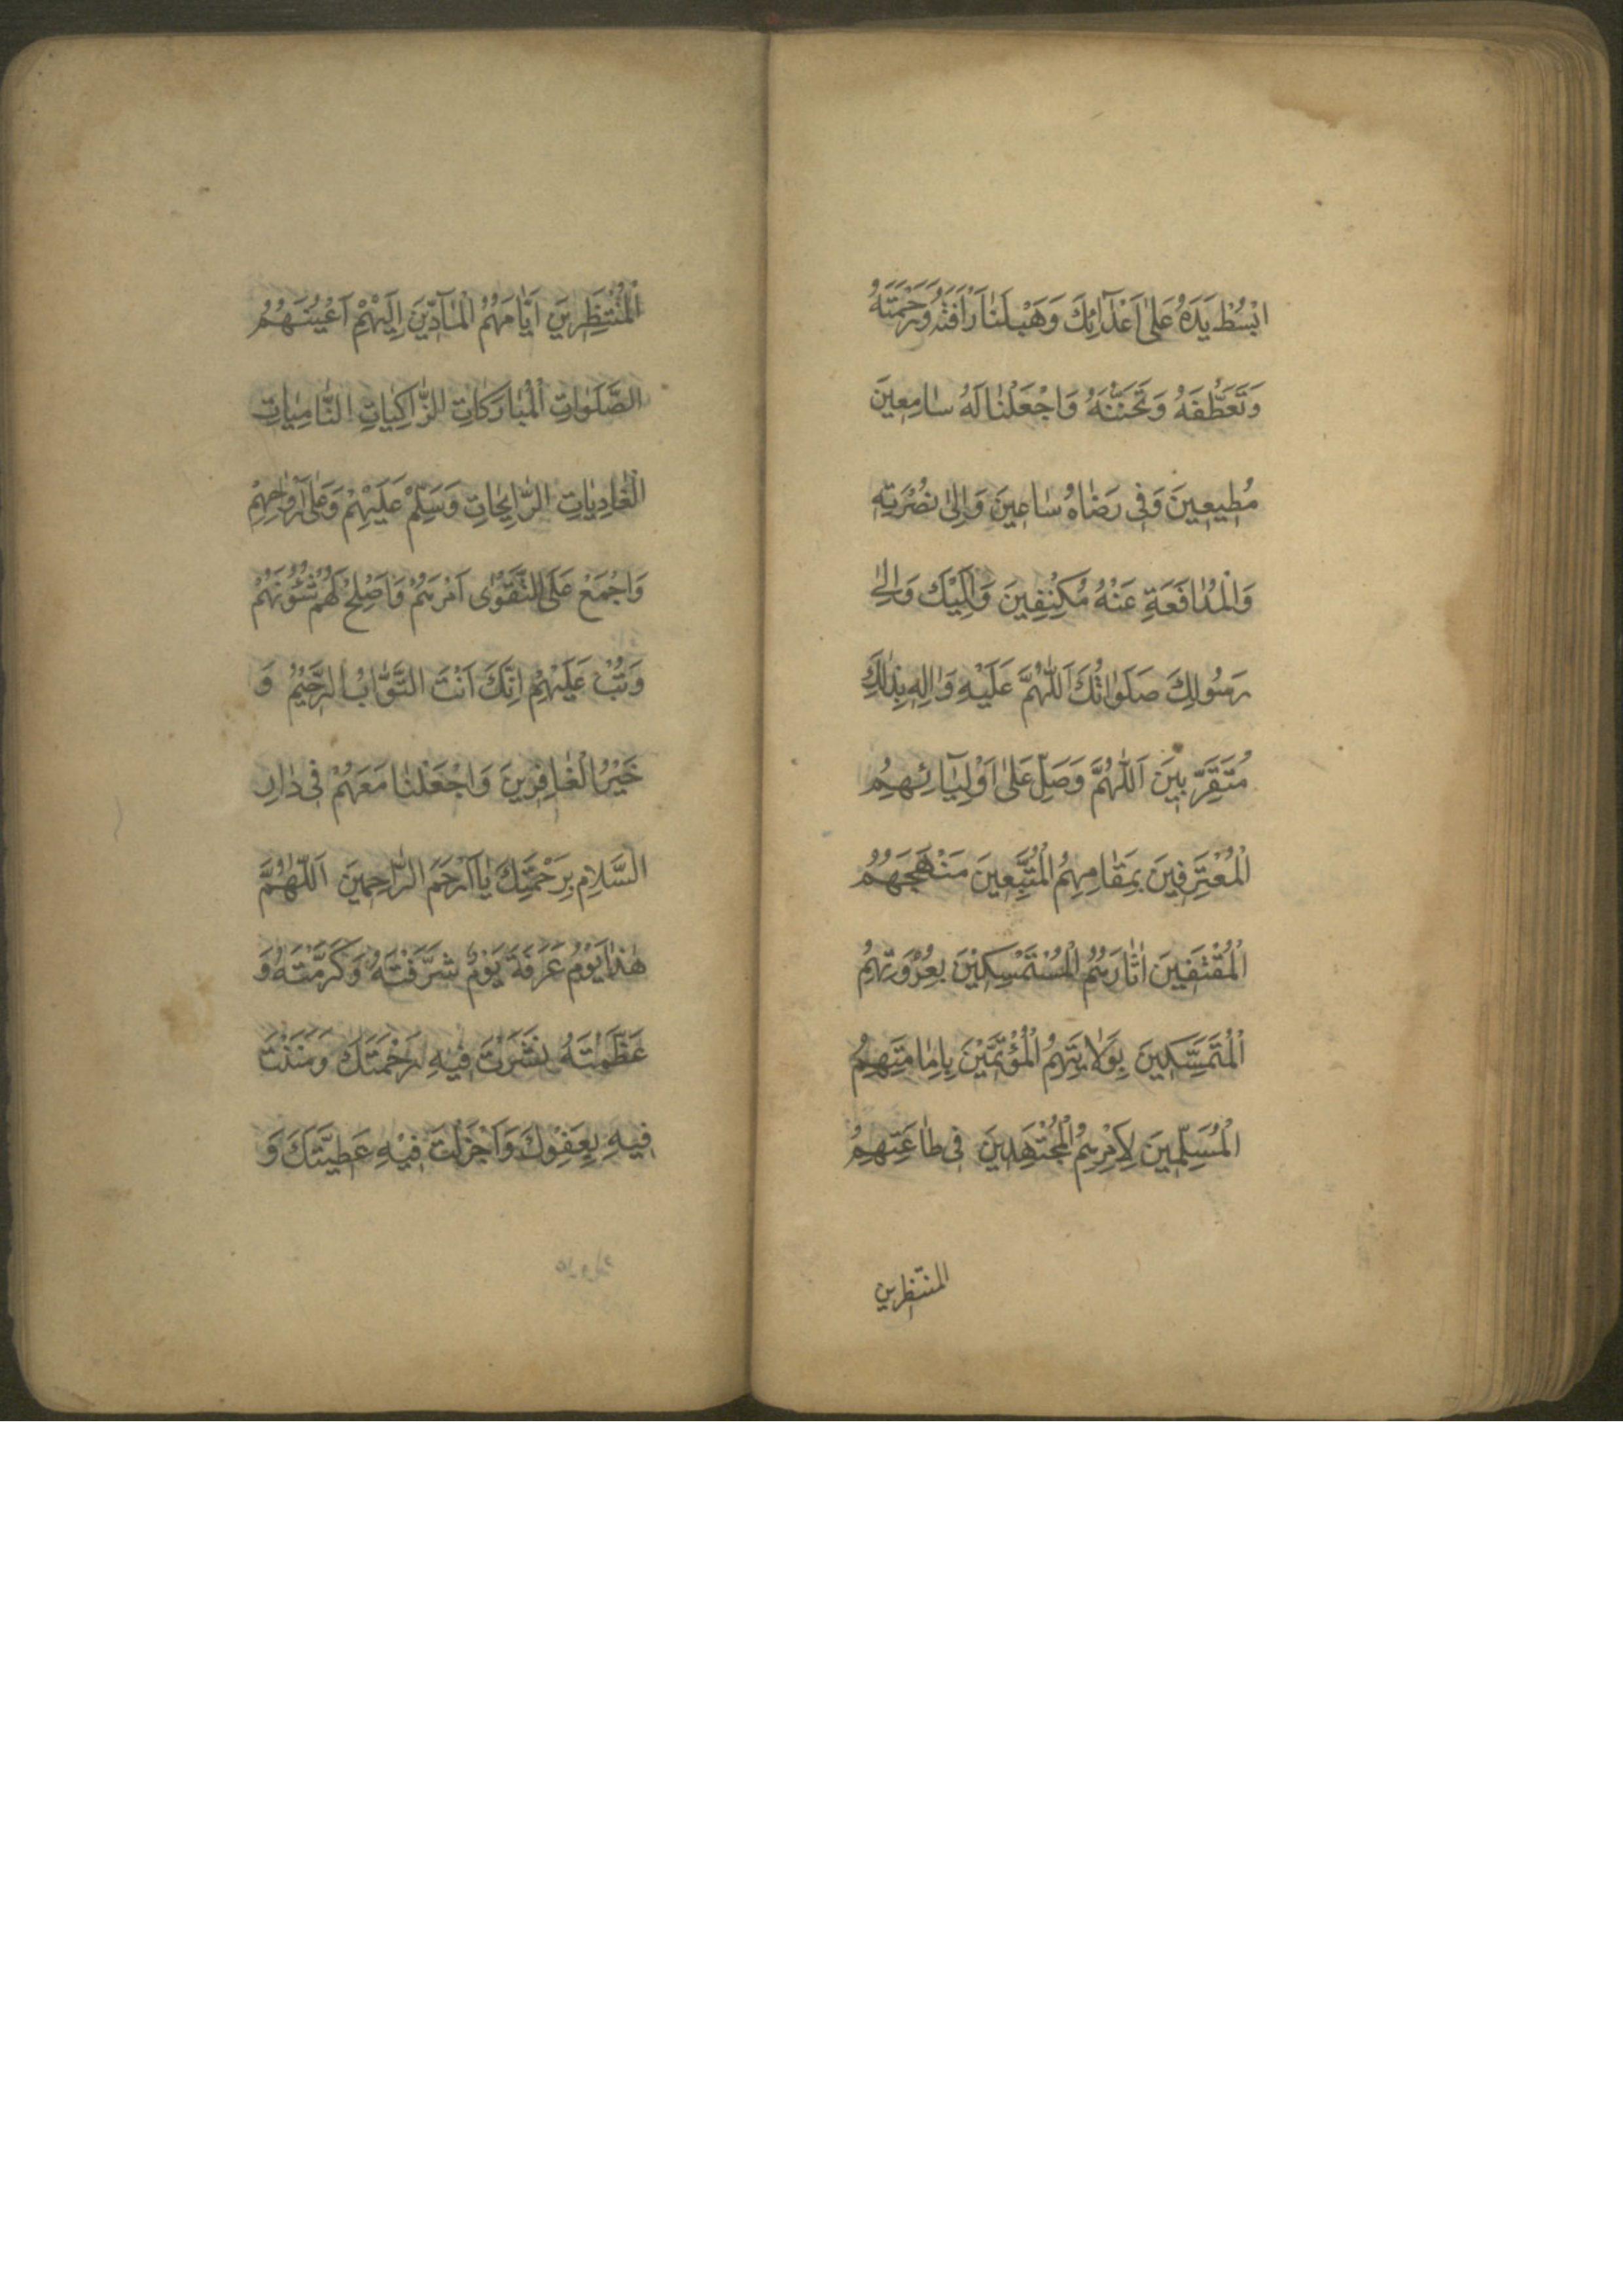 ابْسُطْ يَدَهُ عَلٰى اَعْدَآئِكَ وَهَبْ لَنٰا رَأْفَتَهُ وَرَحْمَتَهُ
وَتَعَطُّفَهُ وَتَحَنُّنَهُ وَاجْعَلْنٰا لَهُ سٰامِعِينَ
مُطِيعِينَ وَفِى رِضٰاهُ سٰاعِينَ وَاِلٰى نُصْرَتِهِ
وَالْمُدٰافَعَةِ عَنْهُ مُكْنِفِينَ وَاِلَيْكَ وَاِلٰى
رَسُولِكَ صَلَوٰاتُكَ اَللّٰهُمَّ عَلَيْهِ وَاٰلِهِ بِذٰلِكَ
مُتَقَرِّبِينَ اَللّٰهُمَّ وَصَلِّ عَلٰى اَوْلِيٰآئِهِمُ
الْمُعْتَرِفِينَ بِمَقٰامِهِمُ الْمُتَّبِعِينَ مَنْهَجَهُمُ
الْمُقْتَفِينَ اٰثٰارَهُمُ الْمُسْتَمْسِكِينَ بِعُرْوَتِهِمُ
الْمُتَمَسِّكِينَ بِوَلٰايَتِهِمُ الْمُؤْتَمِّينَ بِاِمٰامَتِهِمُ
الْمُسَلِّمِينَ لِاَمْرِهِمُ الْمُجْتَهِدِينَ فِى طٰاعَتِهِمُ
المنتظرين
الْمُنْتَظِرِينَ اَيّٰامَهُمُ الْمٰآدِّينَ اِلَيْهِمْ اَعْيُنَهُمُ
الصَّلَوٰاتِ الْمُبٰارَكٰاتِ الزّٰاكِيٰاتِ النّٰامِيٰاتِ
الْغٰادِيٰاتِ الرّٰايِحٰاتِ وَسَلِّمْ عَلَيْهِمْ وَعَلٰى اَرْوٰاحِهِمْ
وَاجْمَعْ عَلَى التَّقْوٰى اَمْرَهُمْ وَاَصْلِحْ لَهُمْ شُئُونَهُمْ
وَتُبْ عَلَيْهِمْ اِنَّكَ اَنْتَ التَّوّٰابُ الرَّحِيمُ وَ
خَيْرُ الْغٰافِرِينَ وَاجْعَلْنٰا مَعَهُمْ فِى دٰارِ
السَّلاٰمِ بِرَحْمَتِكَ يٰا اَرْحَمَ الرّٰاحِمِينَ اَللّٰهُمَّ
هٰذٰا يَوْمُ عَرَفَةَ يَوْمٌ شَرَّفْتَهُ وَكَرَّمْتَهُ وَ
عَظَّمْتَهُ نَشَرْتَ فِيهِ رَحْمَتَكَ وَمَنَنْتَ
فِيهِ بِعَفْوِكَ وَاَجْزَلْتَ فِيهِ عَطِيَّتَكَ وَ